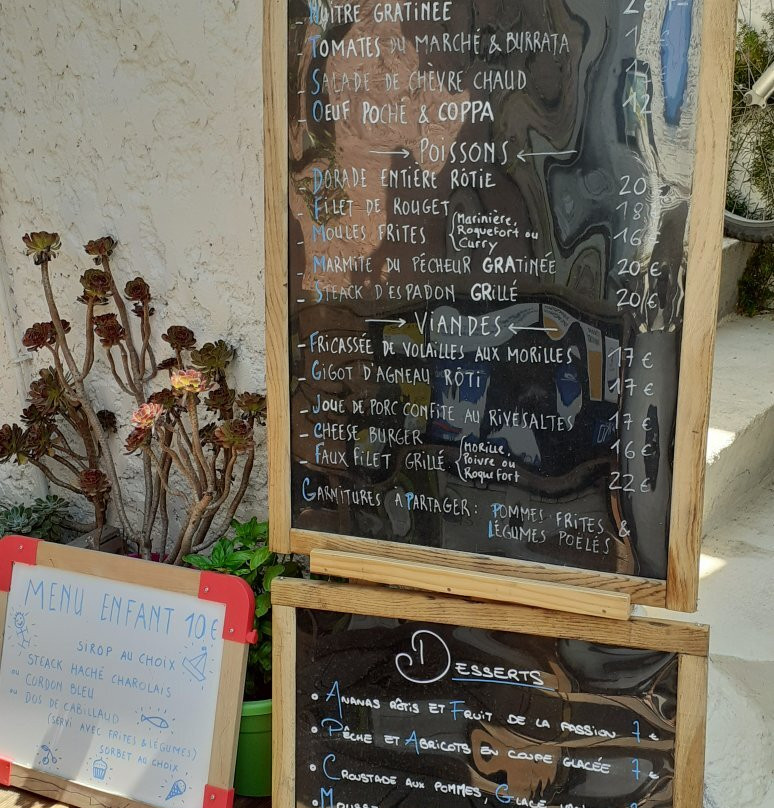 - Huître gratinée
- Tomates du marché & burrata
- Salade de chèvre chaud
- Oeuf poché & coppa 12
Poissons
- Dorade entière rôtie 20 €
- Filet de rouget 18
- Moules frites { Marinière, Roquefort ou Curry 16 €
- Marmite du pêcheur gratinée 20 €
- Steack d'espadon grillé 20 €
Viandes
- Fricassée de volailles aux morilles 17 €
- Gigot d'agneau rôti 17 €
- Joue de porc confite au Rivesaltes 17 €
- Cheese burger 16 €
- Faux filet grillé { Morille, Poivre ou Roquefort 22 €
Garnitures à partager : Pommes frites &
Légumes poêlés
Menu enfant 10€
Sirop au choix
Steack haché charolais
ou Cordon bleu
ou Dos de cabillaud
(servi avec frites & légumes)
Sorbet au choix
Desserts
• Ananas rôtis et Fruit de la passion 7 €
• Pêche et Abricots en coupe glacée 7 €
• Croustade aux pommes, Glace